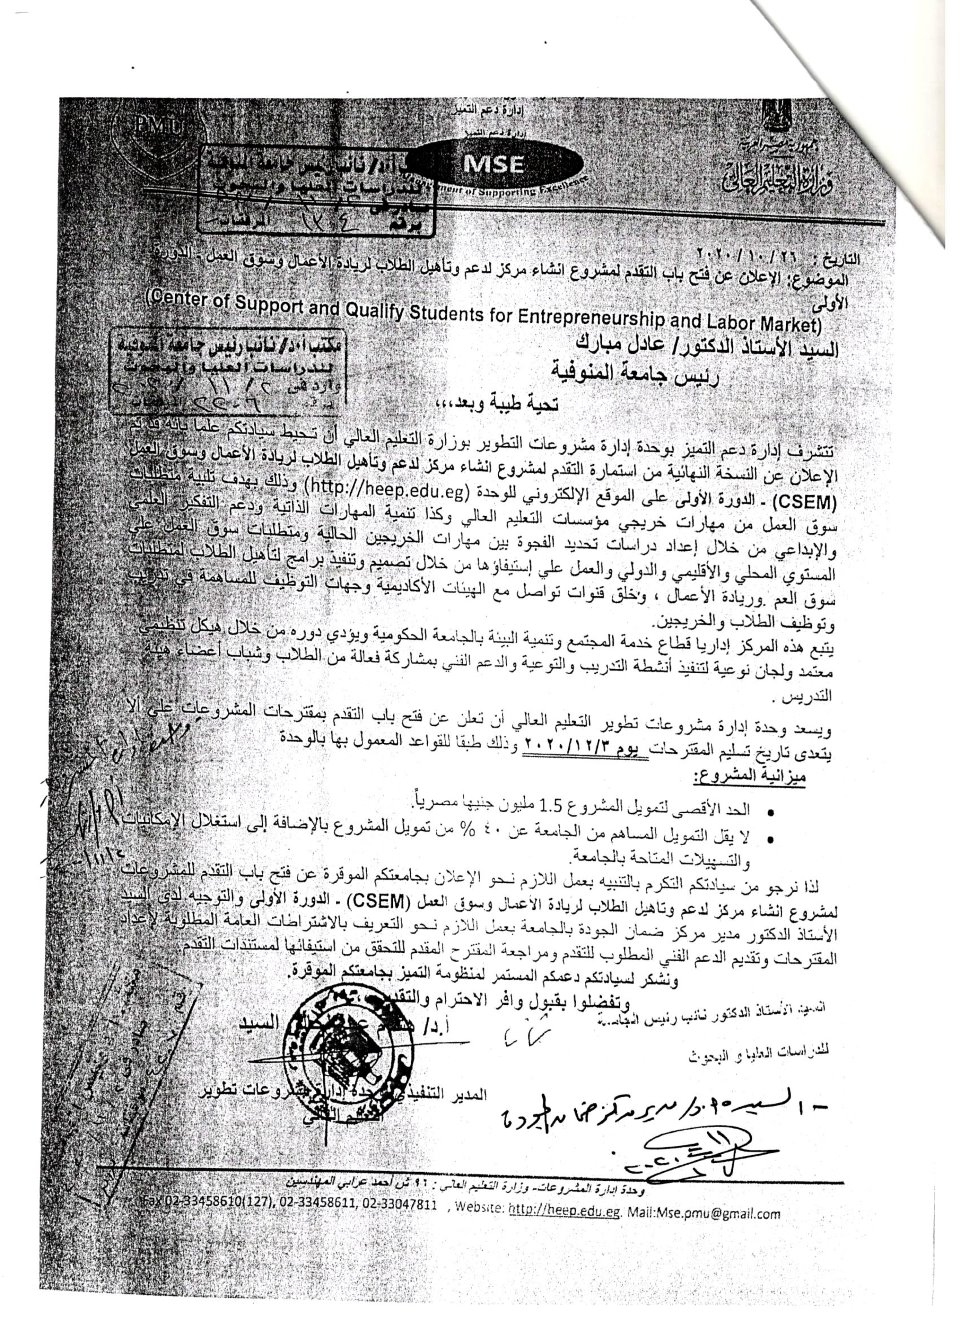 إدارة دعم التميز
إدارة دعم التميز
PMU
MSE
ment of Supporting Excellence
وزارة التعليم العالي
مكتب أ.د/ نائب رئيس جامعة المنوفية
للدراسات العليا والبحوث
التاريخ : ٢٠٢٠/١٠/٢٦
الموضوع: الإعلان عن فتح باب التقدم لمشروع انشاء مركز لدعم وتأهيل الطلاب لريادة الأعمال وسوق العمل - الدورة
الأولى
(Center of Support and Qualify Students for Entrepreneurship and Labor Market)
السيد الأستاذ الدكتور/ عادل مبارك
رئيس جامعة المنوفية
مكتب أ.د/ نائب رئيس جامعة المنوفية
للدراسات العليا والبحوث
تحية طيبة وبعد،،،
تتشرف إدارة دعم التميز بوحدة إدارة مشروعات التطوير بوزارة التعليم العالي أن تحيط سيادتكم علما بانه قد تم
الإعلان عن النسخة النهائية من استمارة التقدم لمشروع انشاء مركز لدعم وتأهيل الطلاب لريادة الأعمال وسوق العمل
(CSEM) - الدورة الأولى على الموقع الإلكتروني للوحدة (http://heep.edu.eg) وذلك بهدف تلبية متطلبات
سوق العمل من مهارات خريجي مؤسسات التعليم العالي وكذا تنمية المهارات الذاتية ودعم التفكير العلمي
والإبداعي من خلال إعداد دراسات تحديد الفجوة بين مهارات الخريجين الحالية ومتطلبات سوق العمل على
المستوي المحلي والأقليمي والدولي والعمل علي إستيفاؤها من خلال تصميم وتنفيذ برامج لتأهيل الطلاب لمتطلبات
سوق العم .وريادة الأعمال ، وخلق قنوات تواصل مع الهيئات الأكاديمية وجهات التوظيف للمساهمة في تدريب
وتوظيف الطلاب والخريجين.
يتبع هذه المركز إداريا قطاع خدمة المجتمع وتنمية البيئة بالجامعة الحكومية ويؤدي دوره من خلال هيكل تنظيمي
معتمد ولجان نوعية لتنفيذ أنشطة التدريب والتوعية والدعم الفني بمشاركة فعالة من الطلاب وشباب أعضاء هيئة
التدريس .
ويسعد وحدة إدارة مشروعات تطوير التعليم العالي أن تعلن عن فتح باب التقدم بمقترحات المشروعات على ألا
يتعدى تاريخ تسليم المقترحات يوم ٢٠٢٠/١٢/٣ وذلك طبقا للقواعد المعمول بها بالوحدة
ميزانية المشروع:
• الحد الأقصى لتمويل المشروع 1.5 مليون جنيها مصرياً.
• لا يقل التمويل المساهم من الجامعة عن ٤٠ % من تمويل المشروع بالإضافة إلى استغلال الإمكانيات
والتسهيلات المتاحة بالجامعة.
لذا نرجو من سيادتكم التكرم بالتنبيه بعمل اللازم نحو الإعلان بجامعتكم الموقرة عن فتح باب التقدم للمشروعات
لمشروع انشاء مركز لدعم وتأهيل الطلاب لريادة الأعمال وسوق العمل (CSEM) - الدورة الأولى والتوجيه لدى السيد
الأستاذ الدكتور مدير مركز ضمان الجودة بالجامعة بعمل اللازم نحو التعريف بالاشتراطات العامة المطلوبة لإعداد
المقترحات وتقديم الدعم الفني المطلوب للتقدم ومراجعة المقترح المقدم للتحقق من استيفائها لمستندات التقدم.
ونشكر لسيادتكم دعمكم المستمر لمنظومة التميز بجامعتكم الموقرة.
وتفضلوا بقبول وافر الاحترام والتقدير
السيد الأستاذ الدكتور نائب رئيس الجامعة
للدراسات العليا و البحوث
أ.د/ السيد
المدير التنفيذي لوحدة إدارة مشروعات تطوير
التعليم العالي
- السيد أ.د/ مدير مركز ضمان الجودة
وحدة إدارة المشروعات- وزارة التعليم العالي : ٩٦ ش أحمد عرابي المهندسين
Fax 02-33458610(127), 02-33458611, 02-33047811 , Website: http://heep.edu.eg. Mail:Mse.pmu@gmail.com